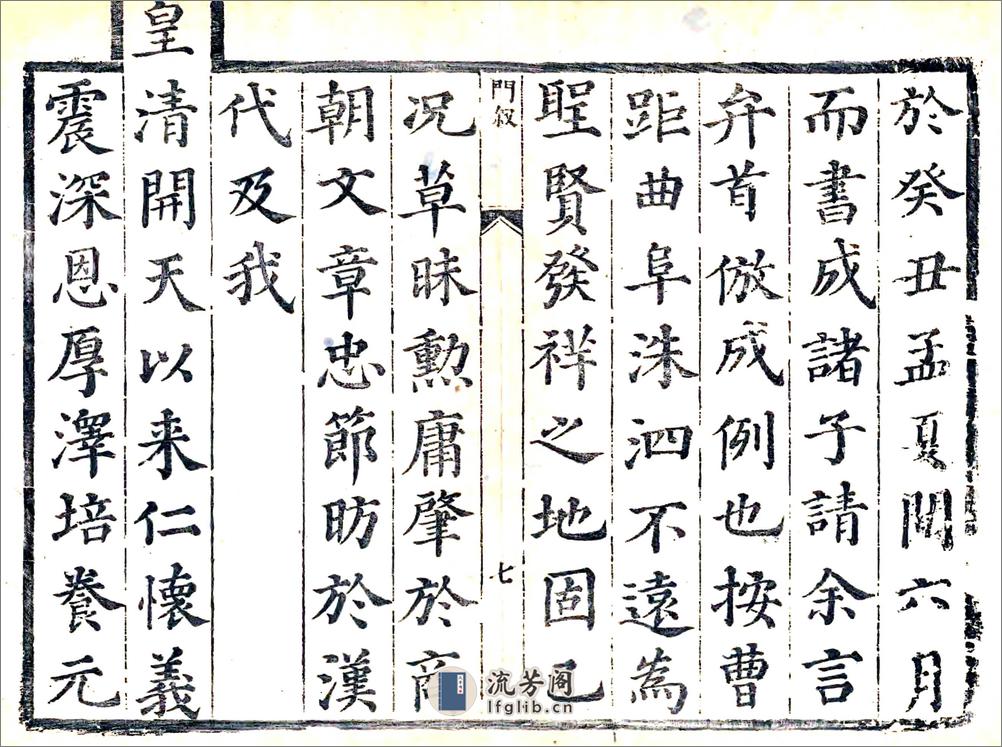 於癸丑孟夏閱六月
而書成諸子請余言
弁首倣成例也按曹
距曲阜洙泗不遠為
聖賢發祥之地固已
門敘
七
况草昧勲庸肇於商
朝文章忠節昉於漢
代及我
皇清開天以来仁懷義
震深恩厚澤培養元
流芳阁
lfglib.cn